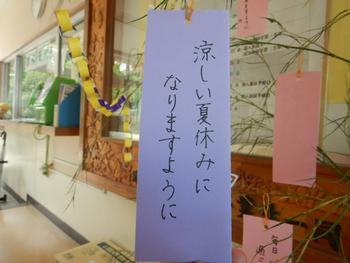 涼しい夏休みに
なりますように
毎日